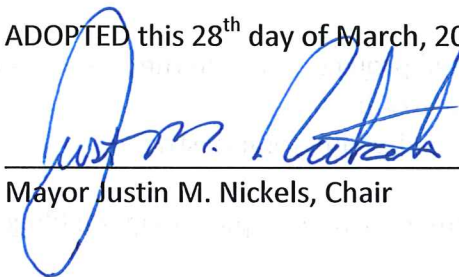 ADOPTED this 28th day of March, 20
Justin M. Nickels
Mayor Justin M. Nickels, Chair